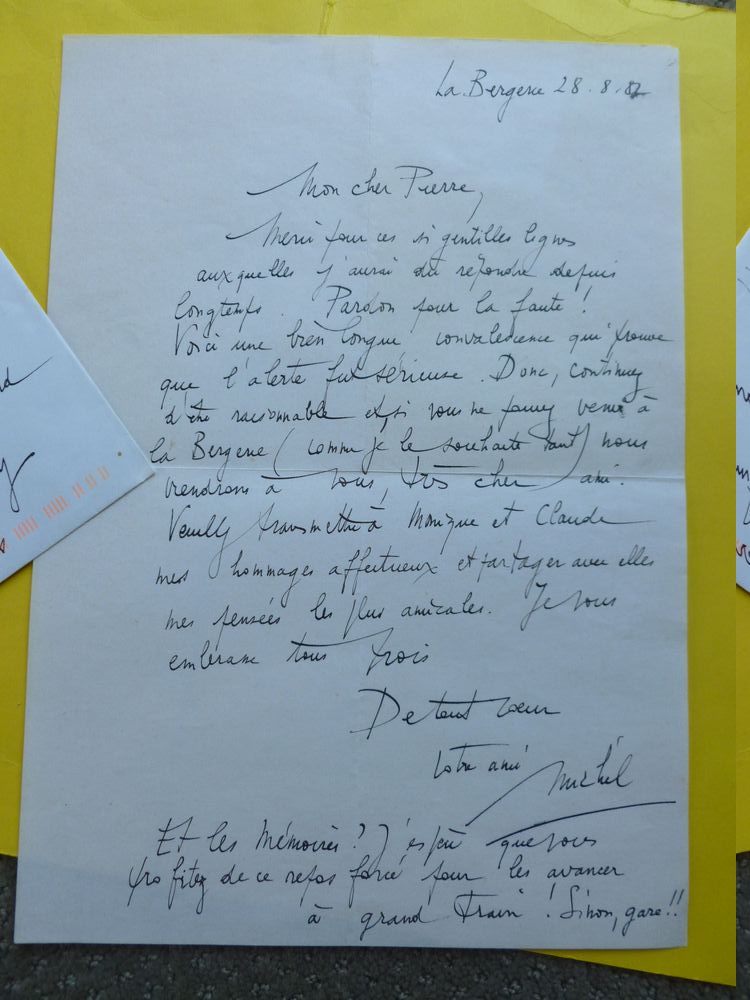 La Bergerie 28.8.82
Mon cher Pierre,
Merci pour ces si gentilles lignes
auxquelles j'aurai dû répondre depuis
longtemps. Pardon pour la faute !
Voici une bien longue convalescence qui prouve
que l'alerte fut sérieuse. Donc, continuez
d'être raisonnable et si vous ne pouvez venir à
la Bergerie (comme je le souhaite tant) nous
viendrons à vous, très cher ami.
Veuillez transmettre à Monique et Claude
mes hommages affectueux et partager avec elles
mes pensées les plus amicales. Je vous
embrasse tous trois
De tout coeur
Votre ami Michel
Et les Mémoires ? J'espère que vous
profitez de ce repos forcé pour les avancer
à grand train ! Sinon, gare !!